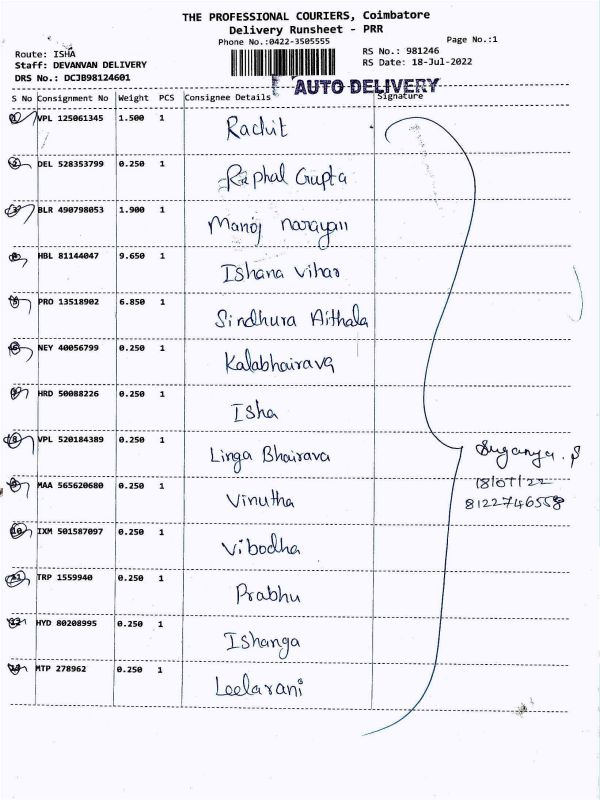 THE PROFESSIONAL COURIERS, Coimbatore
Delivery Runsheet - PRR
Phone No.:0422-3505555 Page No.:1
Route: ISHA RS No.: 981246
Staff: DEVANVAN DELIVERY RS Date: 18-Jul-2022
DRS No.: DCJB98124601
AUTO DELIVERY
S No Consignment No Weight PCS Consignee Details Signature
VPL 125061345 1.500 1 Rachit
2 DEL 528353799 0.250 1 Raphal Gupta
3 BLR 490798053 1.900 1 Manoj narayan
HBL 81144047 9.650 1 Ishana vihar
5 PRO 13518902 6.850 1 Sindhura Aithala
6 NEY 40056799 0.250 1 Kalabhairava
HRD 50088226 0.250 1 Isha
8 VPL 520184389 0.250 1 Linga Bhairava
Suganya. S
9 MAA 565620680 0.250 1 Vinutha
18/07/22
8122746558
10 IXM 501587097 0.250 1 Vibodha
11 TRP 1559940 0.250 1 Prabhu
12 HYD 80208995 0.250 1 Ishanga
MTP 278962 0.250 1 Leelarani